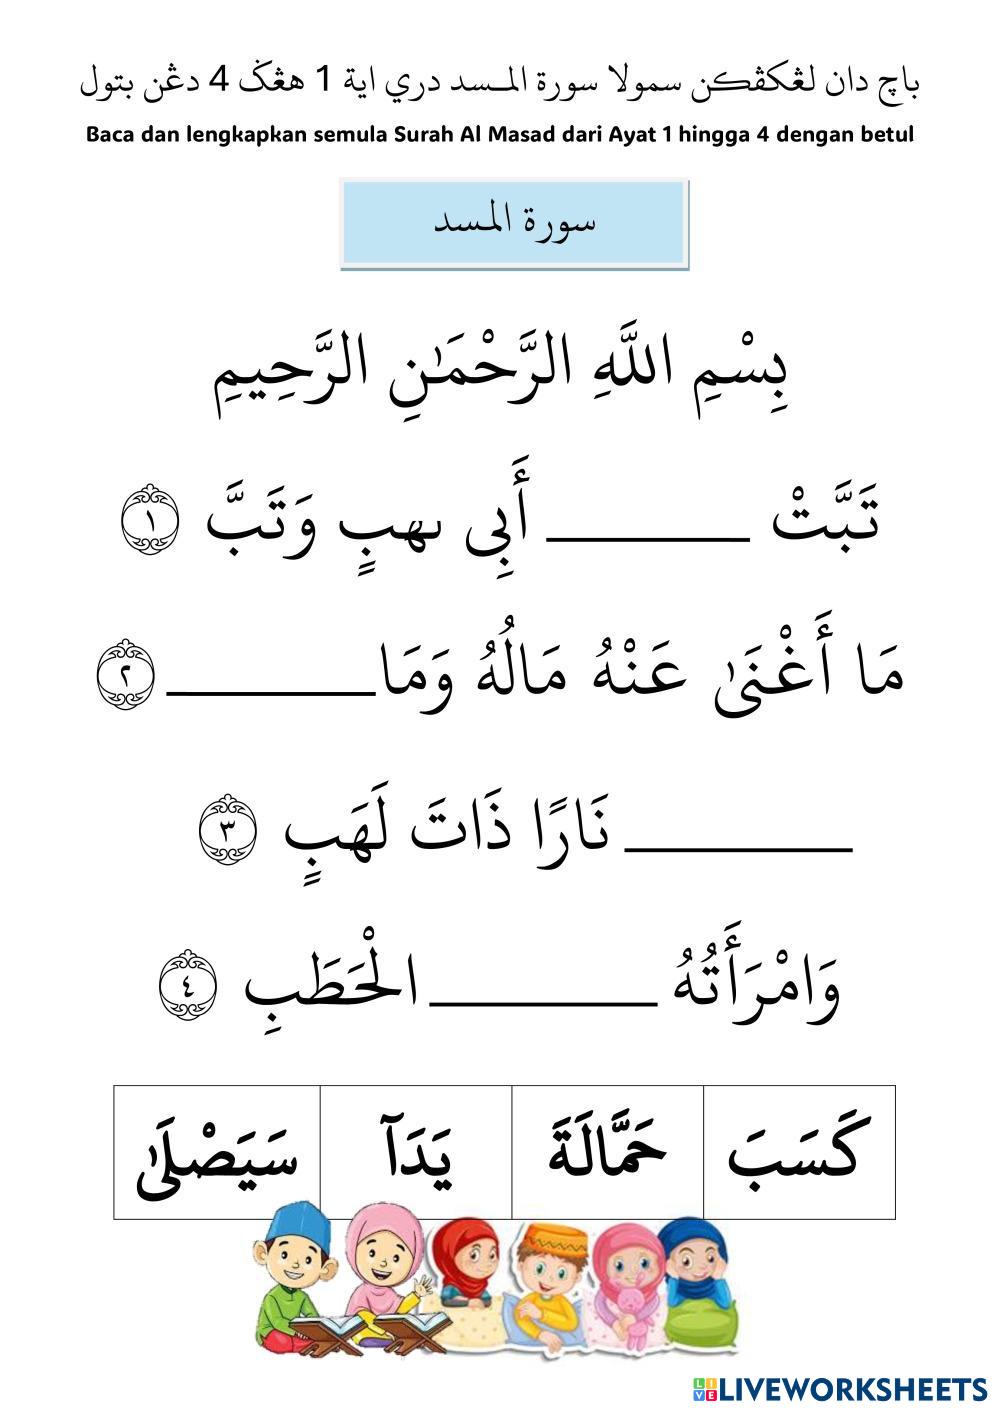 باچ دان لڠكڤكن سمولا سورة المـسد دري اية 1 هڠݢ 4 دڠن بتول
Baca dan lengkapkan semula Surah Al Masad dari Ayat 1 hingga 4 dengan betul
سورة المسد
بِسْمِ اللَّهِ الرَّحْمَٰنِ الرَّحِيمِ
تَبَّتْ ________ أَبِي ىهبٍ وَتَبَّ ١
مَا أَغْنَىٰ عَنْهُ مَالُهُ وَمَا ________ ٢
________ نَارًا ذَاتَ لَهَبٍ ٣
وَامْرَأَتُهُ ________ الْحَطَبِ ٤
كَسَبَ حَمَّالَةَ يَدَآ سَيَصْلَىٰ
LIVE LIVEWORKSHEETS